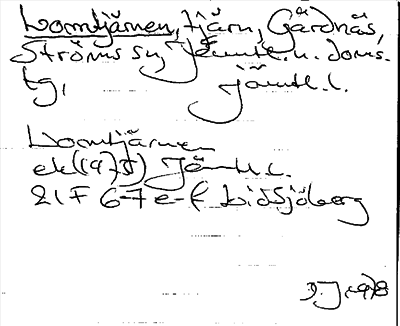 Lomtjärnen, tjärn, Gärdnäs,
Ströms sn, Jämtl. n. doms.
tg, Jämtl. l.
Lomtjärnen
ek (1975) Jämtl. l.
21F 6-7 e-f Lidsjöberg
D.J. 1978